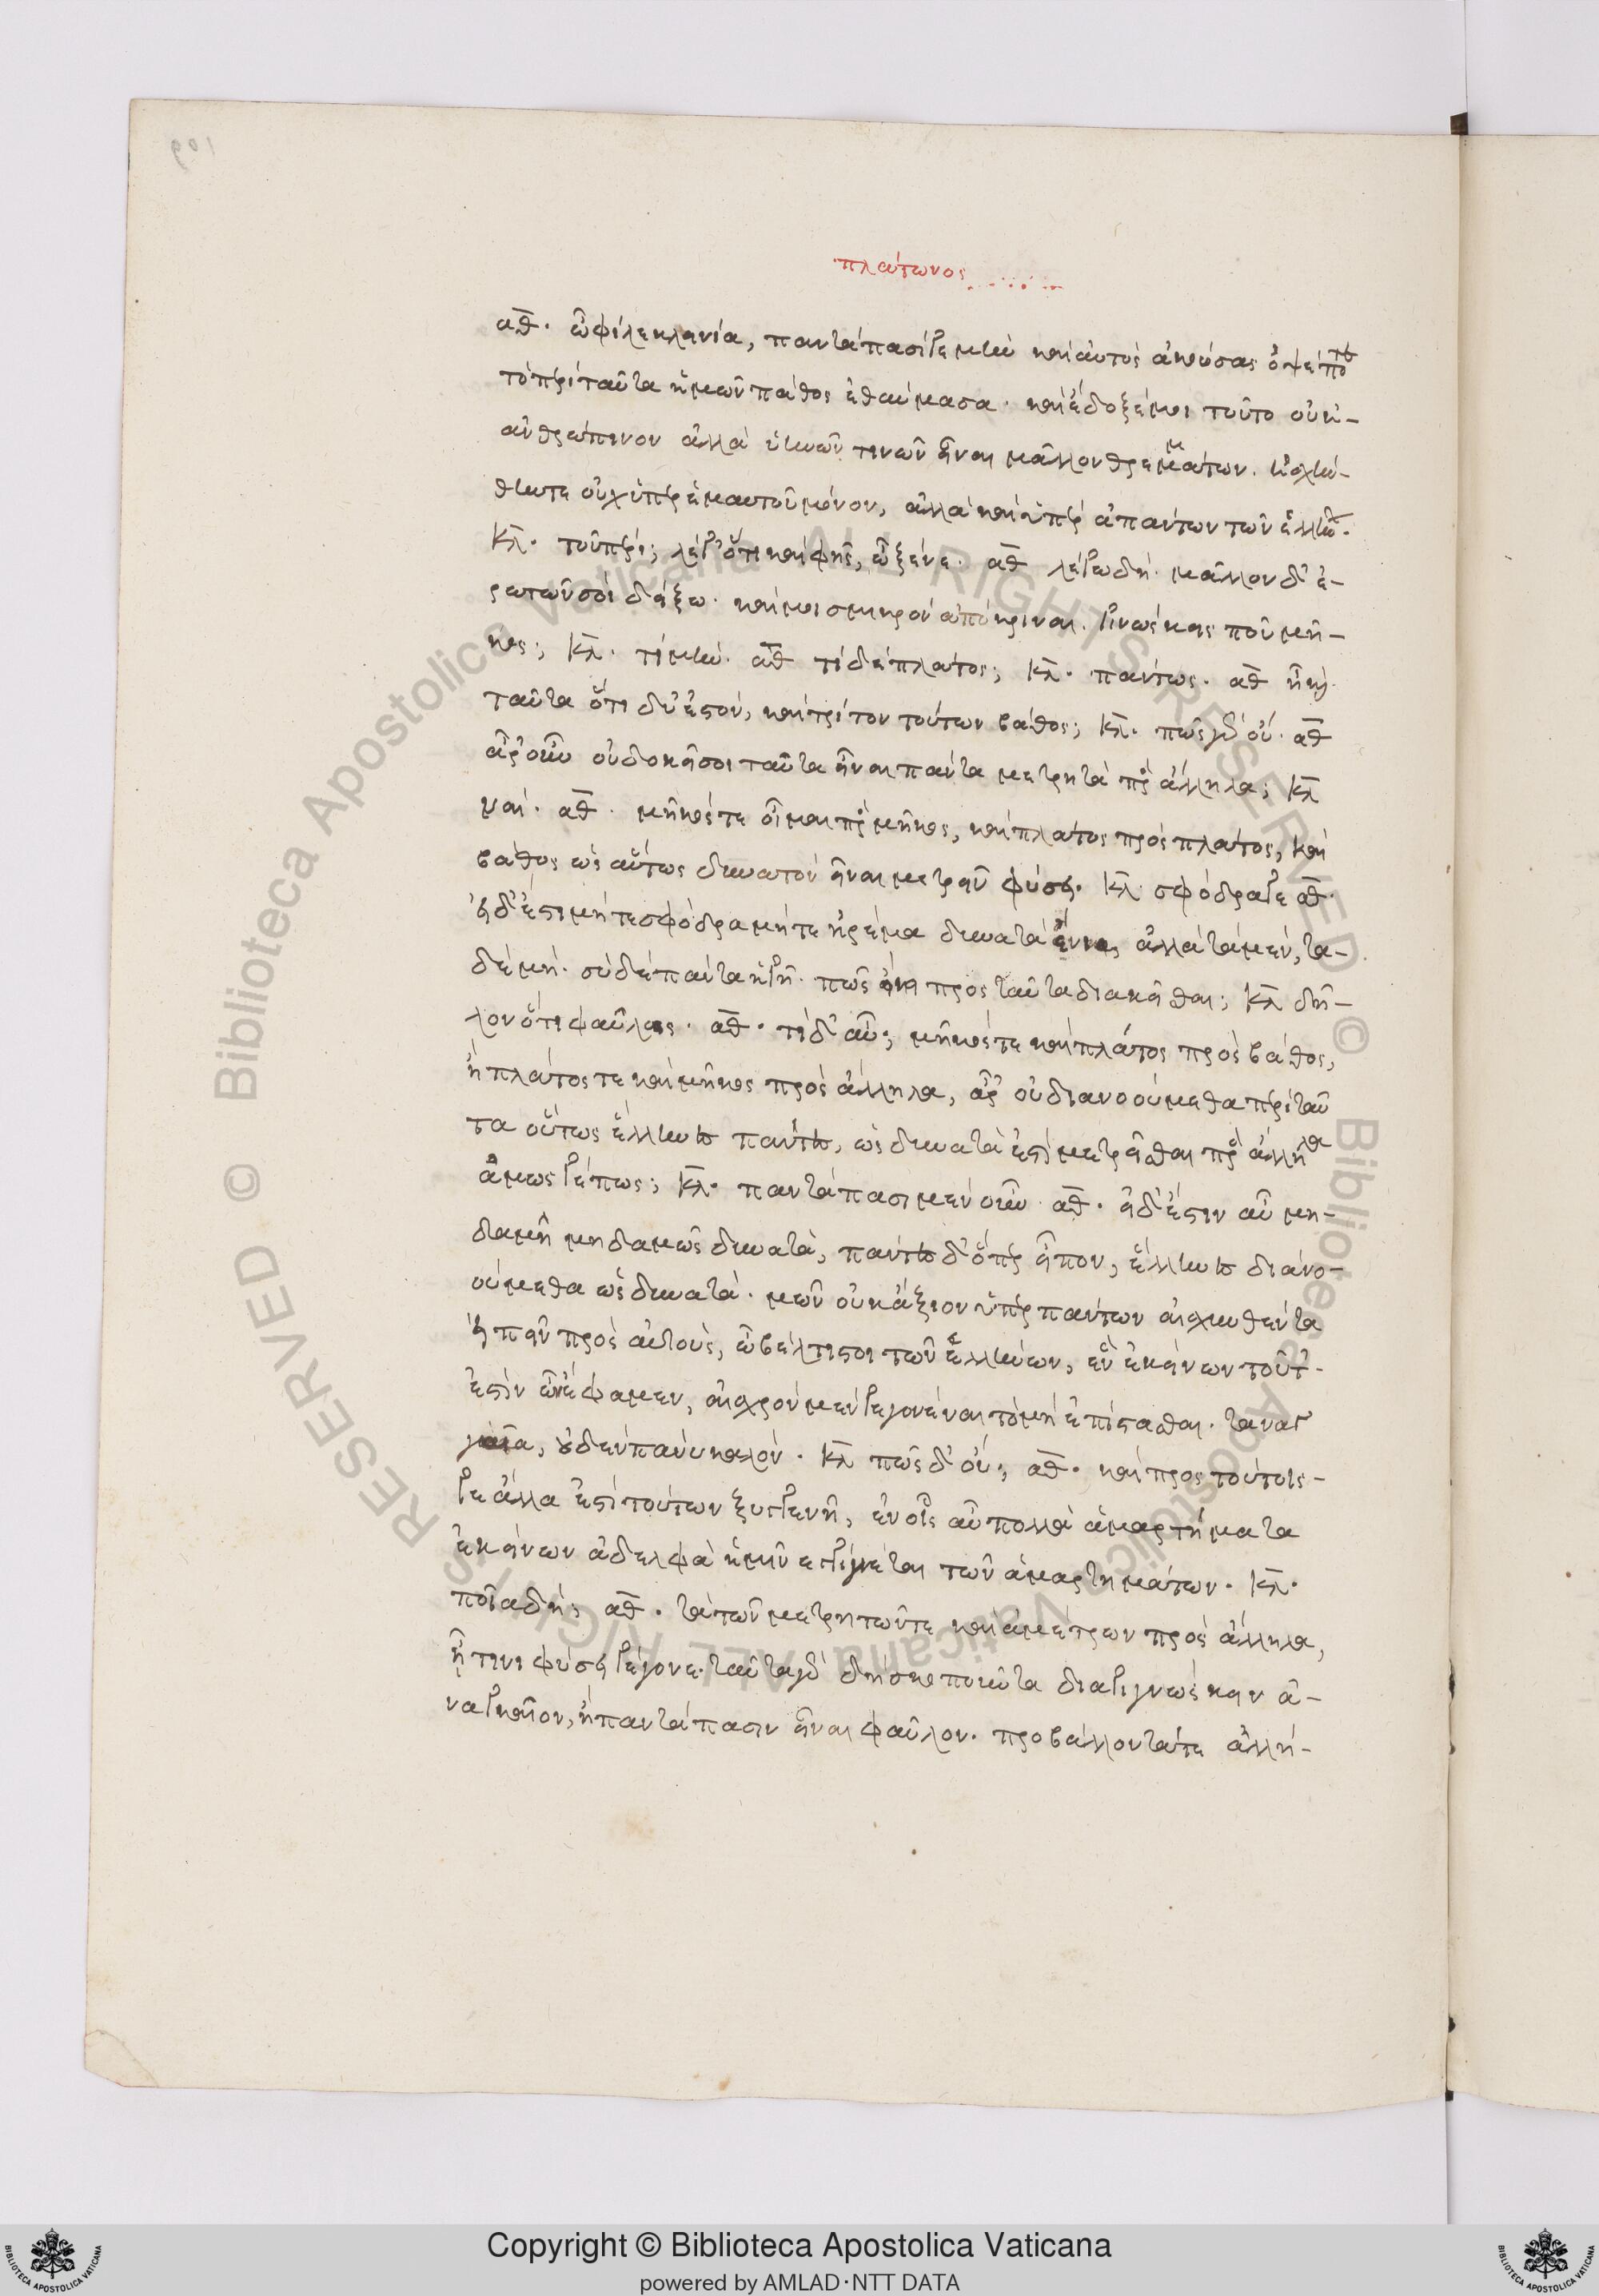 109
πλάτωνος
αθ. ὦ φίλε κλεινία, παντάπασί γε μὴν καὶ αὐτὸς ἀκούσας ὀψέ ποτε
τὸ περὶ ταῦτα ἡμῶν πάθος ἐθαύμασα. καὶ ἔδοξέ μοι τοῦτο οὐκ
ἀνθρώπινον ἀλλὰ ὑηνῶν τινῶν εἶναι μᾶλλον θρεμμάτων. ᾐσχύν-
θην τε οὐχ ὑπὲρ ἐμαυτοῦ μόνον, ἀλλὰ καὶ ὑπὲρ ἁπάντων τῶν ἑλλήνων.
κλ. τοῦ πέρι; λέγ' ὅτι καὶ φῂς, ὦ ξένε. αθ λέγω δή. μᾶλλον δ' ἐ-
ρωτῶν σοι δείξω. καί μοι σμικρὸν ἀπόκριναι. γινώσκεις που μῆ-
κος; κλ. τί μήν. αθ τί δέ πλάτος; κλ. πάντως. αθ ἦ καὶ
ταῦτα ὅτι δύ' ἐστόν, καὶ τρίτον τούτων βάθος; κλ. πῶς γὰρ οὔ. αθ
ἆρ' οὖν οὐ δοκεῖ σοι ταῦτα εἶναι πάντα μετρητὰ πρὸς ἄλληλα; κλ
ναί. αθ. μῆκός τε οἶμαι πρὸς μῆκος, καὶ πλάτος πρὸς πλάτος, καὶ
βάθος ὡσαύτως δυνατὸν εἶναι μετρεῖν φύσει. κλ. σφόδρα γε αθ.
εἰ δ' ἔστι μήτε σφόδρα μήτε ἠρέμα δυνατὰ ἔνια, ἀλλὰ τὰ μέν, τὰ
δὲ μή. σὺ δὲ πάντα ἡγῇ. πῶς οἴει πρὸς ταῦτα διακεῖσθαι; κλ δῆ-
λον ὅτι φαύλως. αθ. τί δ' αὖ; μῆκός τε καὶ πλάτος πρὸς βάθος,
ἢ πλάτος τε καὶ μῆκος πρὸς ἄλληλα, ἆρ' οὐ διανοούμεθα περὶ ταῦ
τα οὕτως ἕλληνες πάντες, ὡς δυνατά ἐστι μετρεῖσθαι πρὸς ἄλληλα
ἁμῶς γέ πως; κλ. παντάπασι μὲν οὖν. αθ. εἰ δ' ἔστιν αὖ μη-
δαμῇ μηδαμῶς δυνατὰ, πάντες δ' ὅπερ εἶπον, ἕλληνες διανο-
ούμεθα ὡς δυνατά. μῶν οὐκ ἄξιον ὑπὲρ πάντων αἰσχυνθέντα
εἰπεῖν πρὸς αὐτούς, ὦ βέλτιστοι τῶν ἑλλήνων, ἓν ἐκείνων τοῦτ'
ἐστὶν ὧν ἔφαμεν, αἰσχρὸν μὲν γεγονέναι τὸ μὴ ἐπίστασθαι. τὰ ναγ
καῖα, οὐδὲν πάνυ καλόν. κλ πῶς δ' οὔ; αθ. καὶ πρὸς τούτοις
γε ἄλλα ἐστὶ τούτων ξυγγενῆ, ἐν οἷς αὖ πολλὰ ἁμαρτήματα
ἐκείνων ἀδελφὰ ἡμῖν ἐγγίγνεται τῶν ἁμαρτημάτων. κλ.
ποῖα δή; αθ. τὰ τῶν μετρητῶν τε καὶ ἀμέτρων πρὸς ἄλληλα,
ᾗ τινι φύσει γέγονε. ταῦτα γὰρ δὴ σκοποῦντα διαγιγνώσκειν ἀ-
ναγκαῖον, ἢ παντάπασιν εἶναι φαῦλον. προβάλλοντά τε ἀλλή-
Copyright © Biblioteca Apostolica Vaticana
powered by AMLAD·NTT DATA